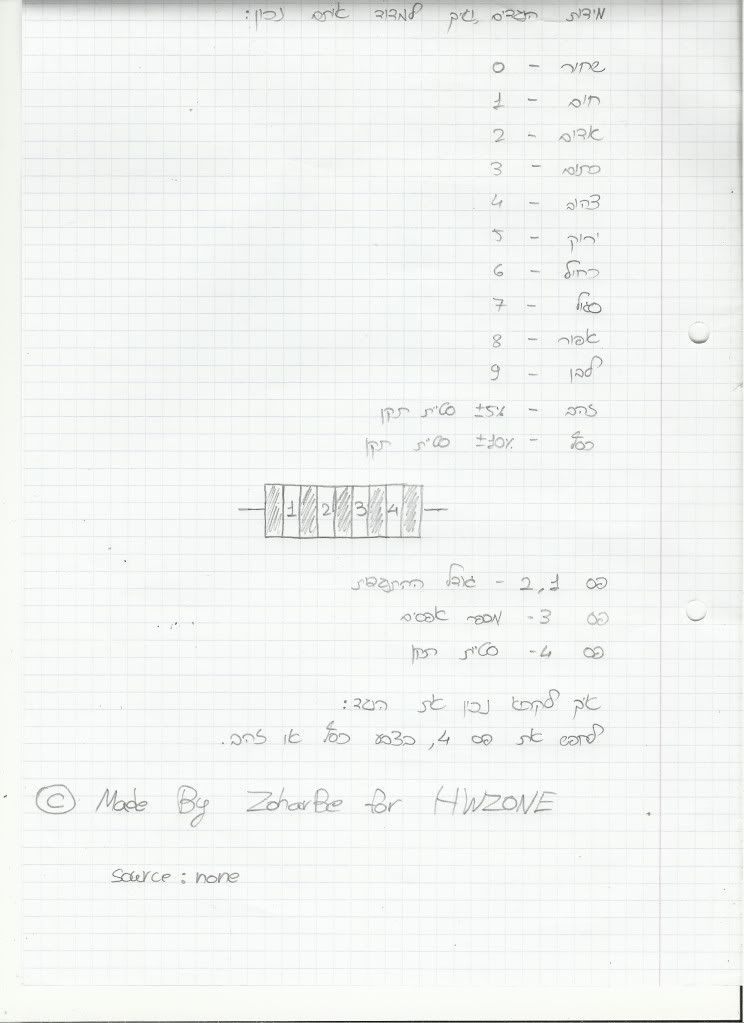 מידות הנגדים, ואיך למדוד אותם נכון:
שחור - 0
חום - 1
אדום - 2
כתום - 3
צהוב - 4
ירוק - 5
כחול - 6
סגול - 7
אפור - 8
לבן - 9
זהב - ±5% סטית תקן
כסף - ±10% סטית תקן
1 2 3 4
פס 1,2 - גודל ההתנגדות
פס 3 - מספר אפסים
פס 4 - סטית תקן
איך לקרוא נכון את הנגד:
לחפש את פס 4, בצבע כסף או זהב.
© Made By ZoharBe for HWZONE
source: none